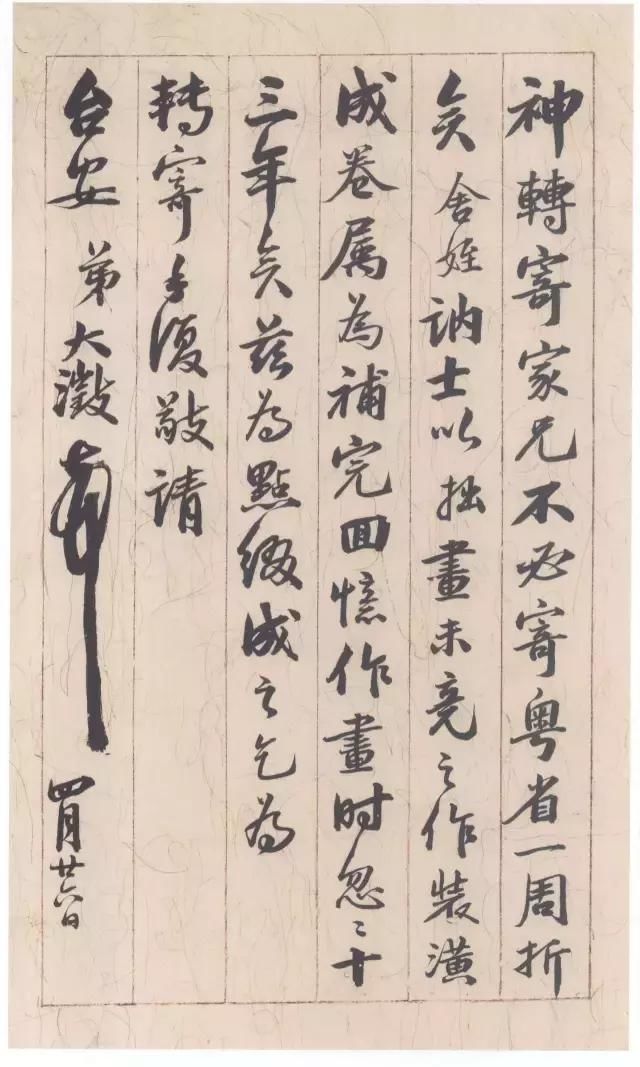 神轉寄家兄不必寄粵省一周折
矣舍姪訥士以拙畫未竟之作裝潢
成卷属為補完回憶作畫时忽忽十
三年矣茲為點綴成之乞為
轉寄手復敬請
台安 弟大澂頓首
四月廿六日